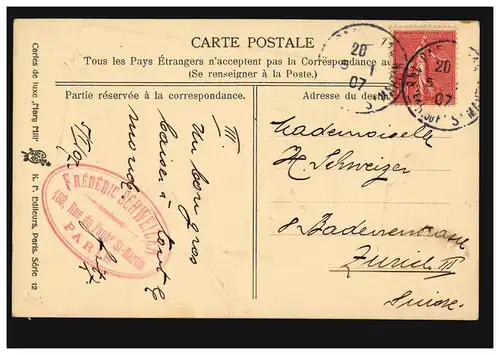 CARTE POSTALE
Tous les Pays Étrangers n'acceptent pas la Correspondance au
(Se renseigner à la Poste.)
Partie réservée à la correspondance.
Adresse du dest
20
5 1
07
20
5
07
III.
Un bon gros
baiser à tout le
monde
Mademoiselle
H. Schweizer
8 Badenerstrasse
Zürich III
Suisse
FRÉDÉRIC SCHWEIZER
Rue du Faubg St-Martin
PARIS
Cartes de luxe „Mary Mill"
K. F. Editeurs, Paris. Série 12